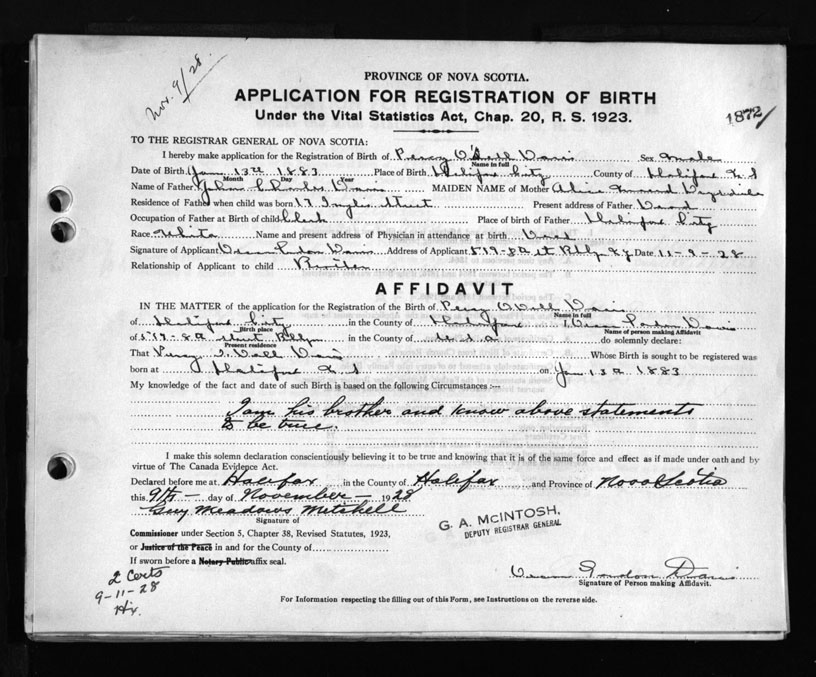 Nov. 9/28.
PROVINCE OF NOVA SCOTIA.
APPLICATION FOR REGISTRATION OF BIRTH
Under the Vital Statistics Act, Chap. 20, R. S. 1923.
1872/
TO THE REGISTRAR GENERAL OF NOVA SCOTIA:
I hereby make application for the Registration of Birth of Percy O'Dell Davis Sex male
Name in full
Date of Birth Jan 13th 1883 Place of Birth Halifax City County of Halifax N S
Month Day Year
Name of Father John Charles Davis MAIDEN NAME of Mother Alice
Residence of Father when child was born 17 Inglis Street Present address of Father Dead
Occupation of Father at Birth of child Clerk Place of birth of Father Halifax City
Race White Name and present address of Physician in attendance at birth Dead
Signature of Applicant Davis Address of Applicant 519-8th St Bklyn N.Y Date 11-9-28
Relationship of Applicant to child Brother
AFFIDAVIT
IN THE MATTER of the application for the Registration of the Birth of Percy O'Dell Davis
Name in full
of Halifax City in the County of Halifax I Gordon Davis
Birth place Name of person making Affidavit
of 519-8th Street Bklyn in the County of U.S.A. do solemnly declare:
Present residence
That Percy O'Dell Davis Whose Birth is sought to be registered was
born at Halifax N.S on Jan 13th 1883
My knowledge of the fact and date of such Birth is based on the following Circumstances :—
I am his brother and know above statements
to be true.
I make this solemn declaration conscientiously believing it to be true and knowing that it is of the same force and effect as if made under oath and by
virtue of The Canada Evidence Act.
Declared before me at Halifax in the County of Halifax and Province of Nova Scotia
this 9th day of November 1928
Guy Meadows Mitchell
Signature of
G. A. McINTOSH,
DEPUTY REGISTRAR GENERAL
Commissioner under Section 5, Chapter 38, Revised Statutes, 1923,
or Justice of the Peace in and for the County of
If sworn before a Notary Public suffix seal.
Gordon Davis
Signature of Person making Affidavit.
2 Certs
9-11-28
Hx.
For Information respecting the filling out of this Form, see Instructions on the reverse side.